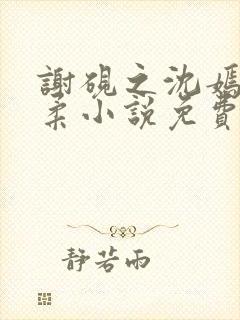 謝硯之沈嫣
柔小說免費
靜若雨